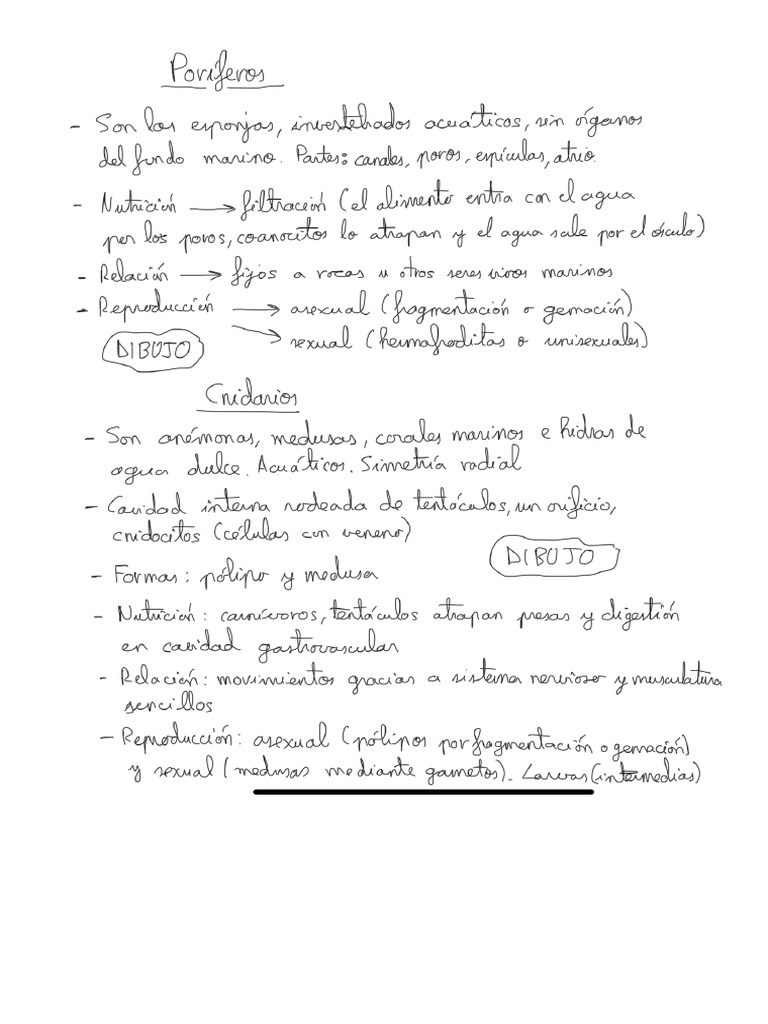 Poríferos
- Son las esponjas, invertebrados acuáticos, sin órganos
del fondo marino. Partes: canales, poros, espículas, atrio.
- Nutrición → filtración (el alimento entra con el agua
por los poros, coanocitos lo atrapan y el agua sale por el ósculo)
- Relación → fijos a rocas u otros seres vivos marinos
- Reproducción → asexual (fragmentación o gemación)
→ sexual (hermafroditas o unisexuales)
DIBUJO
Cnidarios
- Son anémonas, medusas, corales marinos e hidras de
agua dulce. Acuáticos. Simetría radial
- Cavidad interna rodeada de tentáculos, un orificio,
cnidocitos (células con veneno)
DIBUJO
- Formas: pólipo y medusa
- Nutrición: carnívoros, tentáculos atrapan presas y digestión
en cavidad gastrovascular
- Relación: movimientos gracias a sistema nervioso y musculatura
sencillos
- Reproducción: asexual (pólipos por fragmentación o gemación)
y sexual (medusas mediante gametos). Larvas (intermedias)